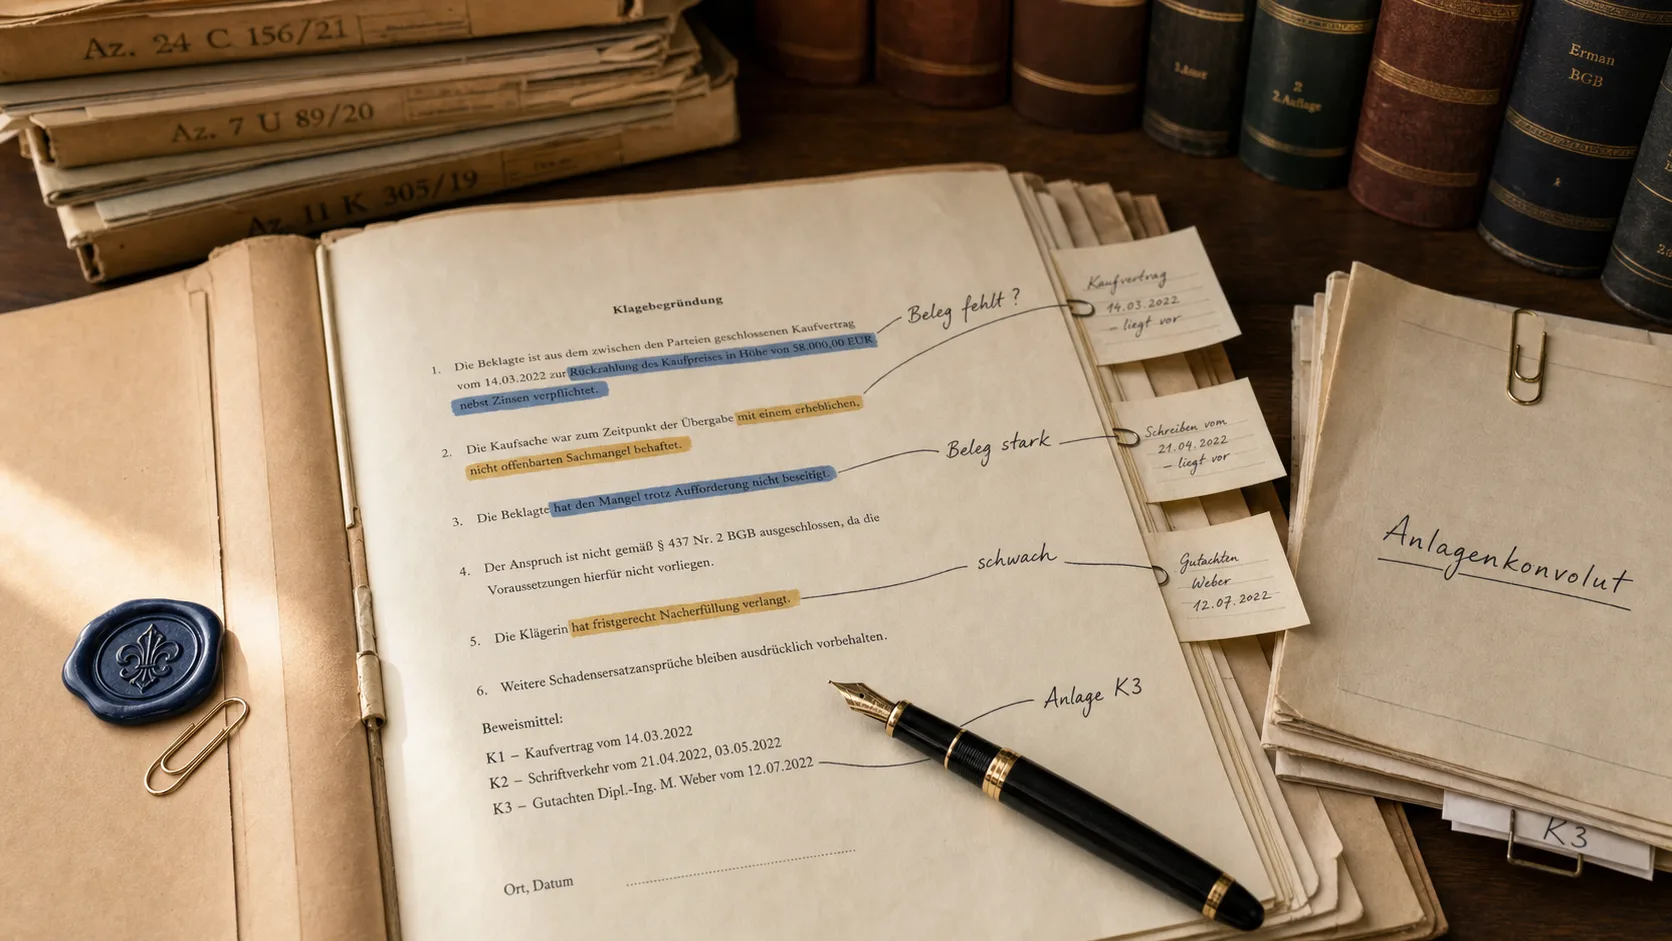 Az. 24 C 156/21
Az. 7 U 89/20
Az. 11 K 305/19
2
2.Auflage
Erman
BGB
1
Klagebegründung
1. Die Beklagte ist aus dem zwischen den Parteien geschlossenen Kaufvertrag
vom 14.03.2022 zur Rückrahlung des Kaufpreises in Höhe von 58.000,00 EUR
nebst Zinsen verpflichtet.
2. Die Kaufsache war zum Zeitpunkt der Übergabe mit einem erheblichen,
nicht offenbarten Sachmangel behaftet.
3. Die Beklagte hat den Mangel trotz Aufforderung nicht beseitigt.
4. Der Anspruch ist nicht gemäß § 437 Nr. 2 BGB ausgeschlossen, da die
Voraussetzungen hierfür nicht vorliegen.
5. Die Klägerin hat fristgerecht Nacherfüllung verlangt.
6. Weitere Schadensersatzansprüche bleiben ausdrücklich vorbehalten.
Beweismittel:
K1 – Kaufvertrag vom 14.03.2022
K2 – Schriftverkehr vom 21.04.2022, 03.05.2022
K3 – Gutachten Dipl.-Ing. M. Weber vom 12.07.2022
Ort, Datum
Beleg fehlt ?
Beleg stark
schwach
Anlage K3
Kaufvertrag
14.03.2022
– liegt vor
Schreiben vom
21.04.2022
– liegt vor
Gutachten
Weber
12.07.2022
Anlagenkonvolut
K3